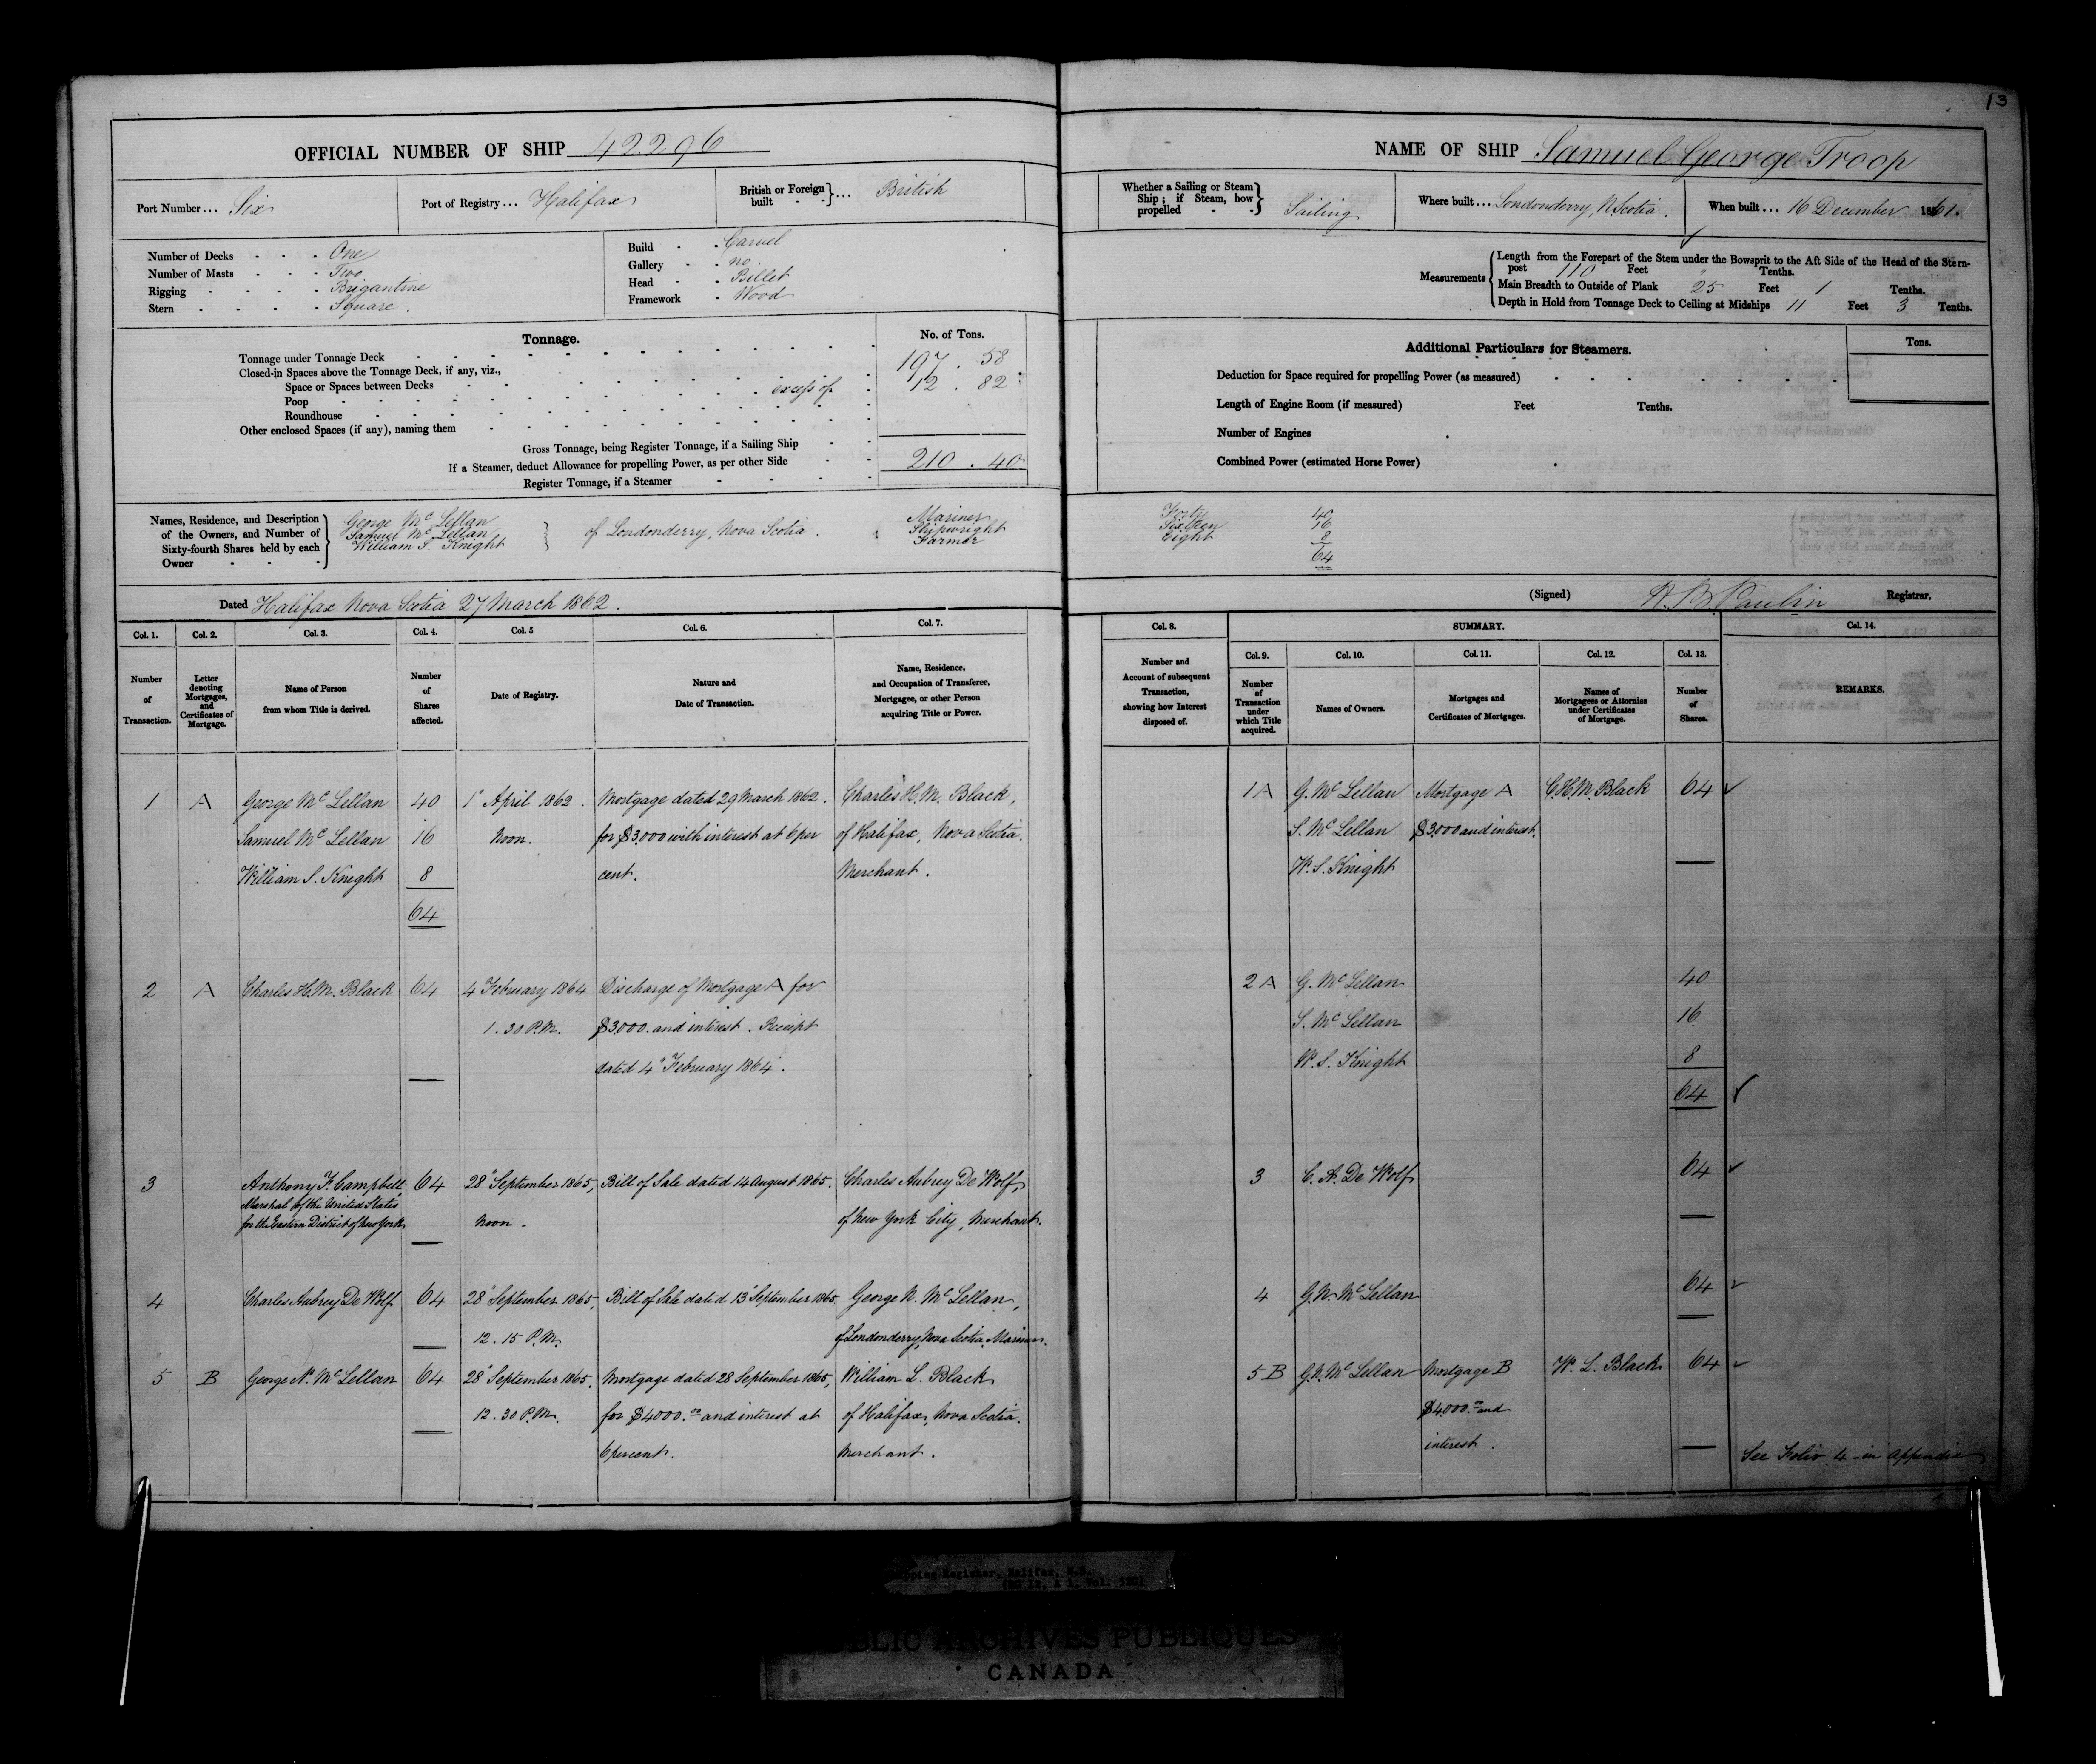 13
OFFICIAL NUMBER OF SHIP 42296
Port Number ... Six
Port of Registry ... Halifax
British or Foreign built - - } ... British
Number of Decks - - - One
Number of Masts - - - Two
Rigging - - - - Brigantine
Stern - - - - Square.
Build - - Carvel
Gallery - - no.
Head - - Billet
Framework - Wood
Tonnage.
No. of Tons.
Tonnage under Tonnage Deck 197 . 58
Closed-in Spaces above the Tonnage Deck, if any, viz.,
Space or Spaces between Decks excess of 12 . 82
Poop
Roundhouse
Other enclosed Spaces (if any), naming them
Gross Tonnage, being Register Tonnage, if a Sailing Ship
If a Steamer, deduct Allowance for propelling Power, as per other Side 210 . 40
Register Tonnage, if a Steamer
Names, Residence, and Description of the Owners, and Number of Sixty-fourth Shares held by each Owner
George McLellan
Samuel McLellan
William S. Knight
of Londonderry, Nova Scotia.
Mariner
Shipwright
Farmer
Dated Halifax Nova Scotia 27 March 1862.
NAME OF SHIP Samuel George Troop
Whether a Sailing or Steam Ship; if Steam, how propelled - - } Sailing
Where built ... Londonderry, N.Scotia.
When built ... 16 December 1861.
Measurements
Length from the Forepart of the Stem under the Bowsprit to the Aft Side of the Head of the Stern-
post 110 Feet " Tenths.
Main Breadth to Outside of Plank 25 Feet 1 Tenths.
Depth in Hold from Tonnage Deck to Ceiling at Midships 11 Feet 3 Tenths.
Additional Particulars for Steamers.
Tons.
Deduction for Space required for propelling Power (as measured)
Length of Engine Room (if measured) Feet Tenths.
Number of Engines
Combined Power (estimated Horse Power)
Forty 40
Sixteen 16
Eight 8
64
(Signed) Registrar.
Col. 1. Col. 2. Col. 3. Col. 4. Col. 5 Col. 6. Col. 7.
Number of Transaction.
Letter denoting Mortgages, and Certificates of Mortgage.
Name of Person from whom Title is derived.
Number of Shares affected.
Date of Registry.
Nature and Date of Transaction.
Name, Residence, and Occupation of Transferee, Mortgagee, or other Person acquiring Title or Power.
1 A George McLellan 40 1" April 1862. Mortgage dated 29 March 1862. Charles H. M. Black,
Samuel McLellan 16 Noon. for $3,000 with interest at 6 per of Halifax, Nova Scotia.
William S. Knight 8 cent. Merchant.
64
2 A Charles H. M. Black 64 4 February 1864 Discharge of Mortgage A for
1.30 P.M. $3,000. and interest. Receipt
dated 4" February 1864.
3 Anthony F. Campbell 64 28" September 1865, Bill of Sale dated 14 August 1865. Charles Aubrey De Wolf,
Marshal of the United States
for the Eastern District of New York Noon - of New York City, Merchant.
4 Charles Aubrey De Wolf 64 28" September 1865, Bill of Sale dated 13" September 1865 George N. McLellan,
12.15 P.M. of Londonderry, Nova Scotia, Mariner.
5 B George N. McLellan 64 28" September 1865. Mortgage dated 28 September 1865, William L. Black
12.30 P.M. for $4000.00 and interest at of Halifax, Nova Scotia.
6 percent. Merchant.
Col. 8. SUMMARY. Col. 14.
Col. 9. Col. 10. Col. 11. Col. 12. Col. 13.
Number and Account of subsequent Transaction, showing how Interest disposed of.
Number of Transaction under which Title acquired.
Names of Owners.
Mortgages and Certificates of Mortgages.
Names of Mortgagees or Attornies under Certificates of Mortgage.
Number of Shares.
REMARKS.
1 A G. McLellan Mortgage A C. H. M. Black 64
S. McLellan $3,000 and interest.
W. S. Knight
2 A G. McLellan 40
S. McLellan 16
W. S. Knight 8
64
3 C. A. De Wolf 64
4 G. N. McLellan 64
5 B G. N. McLellan Mortgage B W. L. Black 64
$4,000.00 and
interest.
See Folio 4 in Appendix
Shipping Register, Halifax, N.S.
PUBLIC ARCHIVES PUBLIQUES
CANADA